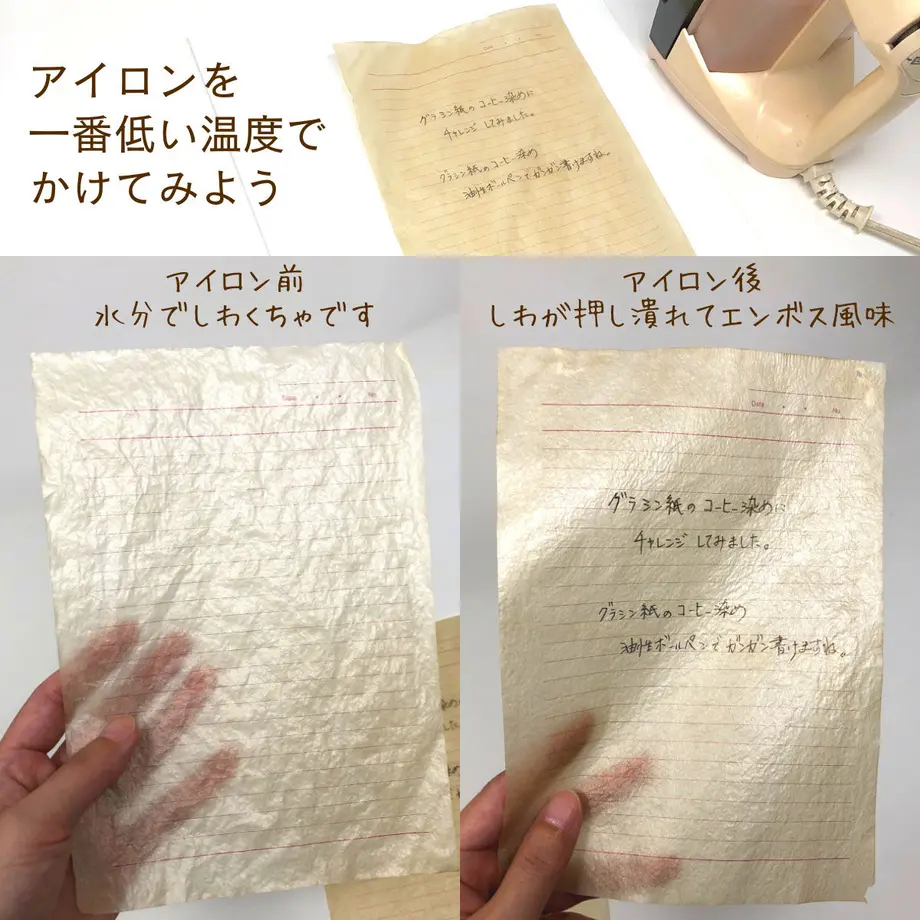 アイロンを
一番低い温度で
かけてみよう
Date ・ ・ No.
グラシン紙のコーヒー染めに
チャレンジしてみました。
グラシン紙のコーヒー染め
油性ボールペンでガンガン書けますね。
アイロン前
水分でしわくちゃです
Date ・ ・ No.
アイロン後
しわが押し潰れてエンボス風味
Date ・ ・ No.
グラシン紙のコーヒー染めに
チャレンジしてみました。
グラシン紙のコーヒー染め
油性ボールペンでガンガン書けますね。